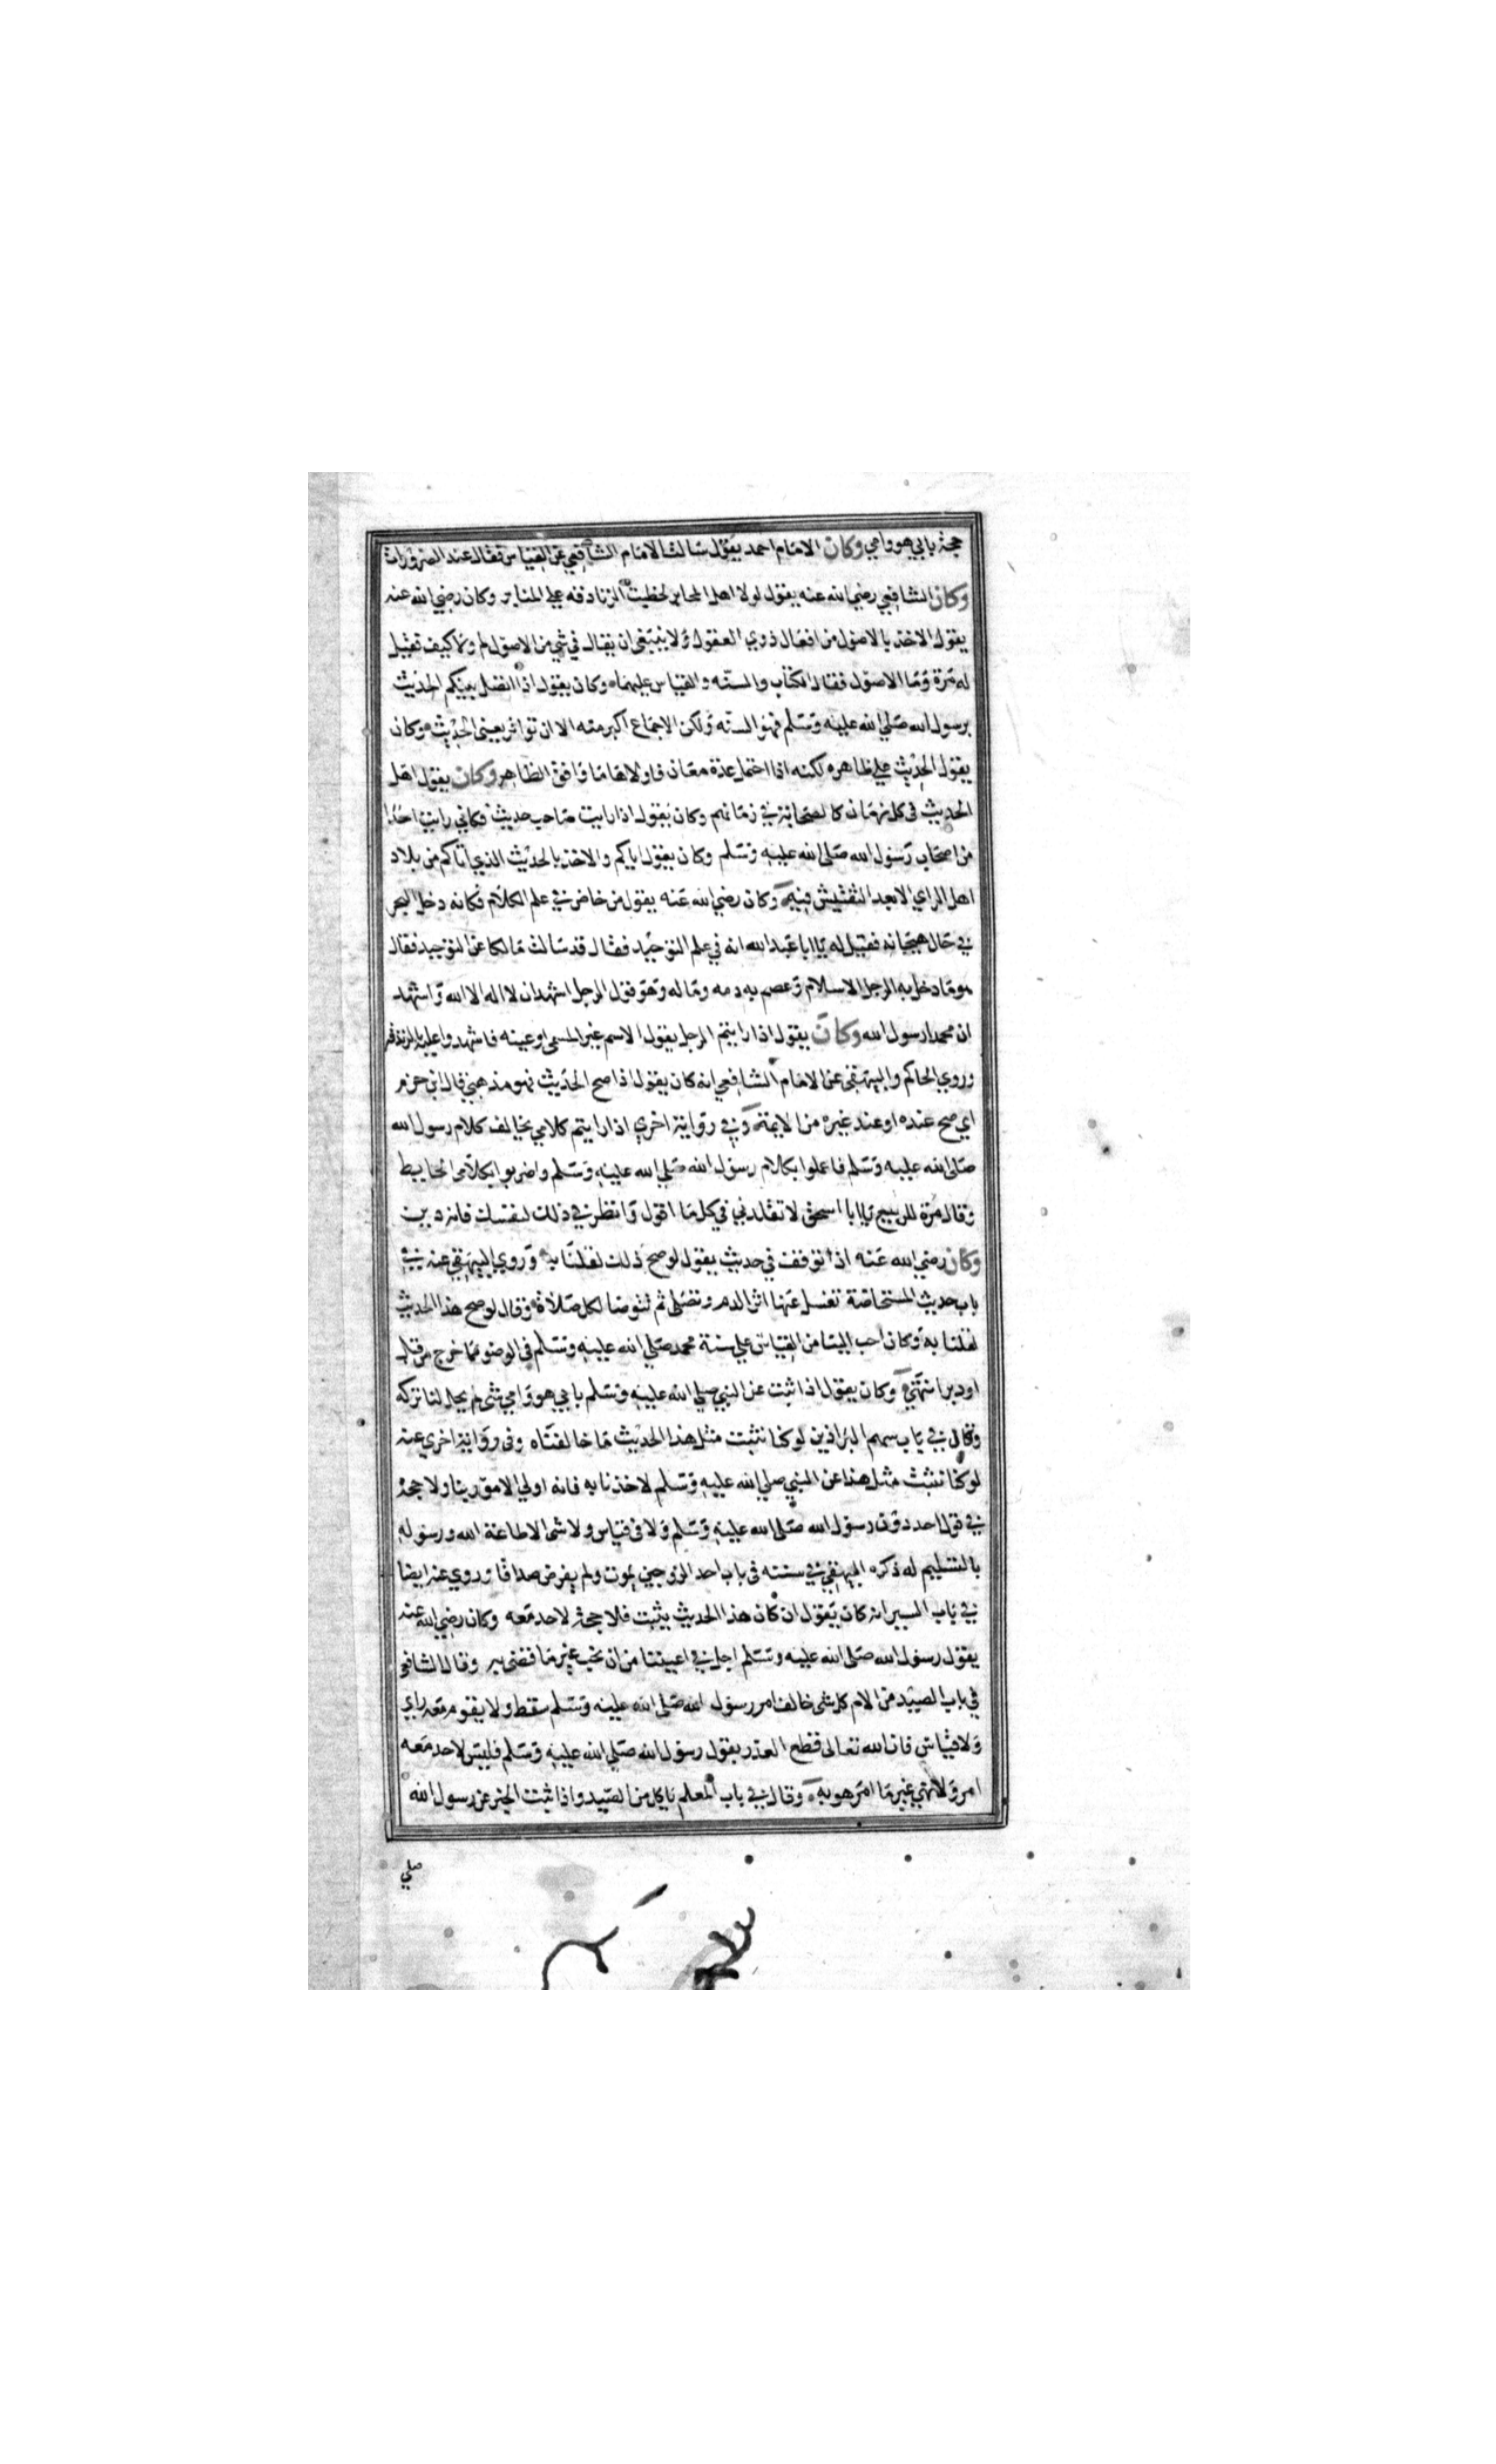 حجة بابي هو وامي وكان الامام احمد يقول سالت الامام الشافعي عن القياس فقال عند الضرورات
وكان الشافعي رضي الله عنه يقول لولا اهل المحابر لخطبت الزنادقه علي المنابر وكان رضي الله عنه
يقول الاخذ بالاصول من افعال ذوي العقول ولا ينبغي ان يقال في شي من الاصول لم ولا كيف فقيل
له مرة وما الاصول فقال الكتاب والسنه والقياس عليهما وكان يقول اذا اتصل بينكم الحديث
برسول الله صلي الله عليه وسلم فهو السنه ولكن الاجماع اكبر منه الا ان تواتر يعني الحديث وكان
يقول الحديث علي ظاهره لكنه اذا احتمل عدة معان فاولاها ما وافق الظاهر وكان يقول اهل
الحديث في كل زمان كالصحابة في زمانهم وكان يقول اذا رايت صاحب حديث فكاني رايت احدا
من اصحاب رسول الله صلى الله عليه وسلم وكان يقول اياكم والاخذ بالحديث الذي اتاكم من بلاد
اهل الراي الا بعد التفتيش فيه وكان رضي الله عنه يقول من خاض في علم الكلام فكانه دخل البحر
في حال هيجانه فقيل له يا ابا عبد الله انه في علم التوحيد فقال قد سالت مالكا عن التوحيد فقال
هو ما دخل به الرجل الاسلام وعصم به دمه وماله وهو قول الرجل اشهد ان لا اله الا الله واشهد
ان محمدا رسول الله وكان يقول اذا رايتم الرجل يقول الاسم غير المسمى او عينه فاشهدوا عليه بالزندقة
وروي الحاكم والبيهقى عن الامام الشافعي انه كان يقول اذا صح الحديث فهو مذهبي قال ابن حزم
اي صح عنده او عند غيره من الايمة وفي رواية اخري اذا رايتم كلامي يخالف كلام رسول الله
صلى الله عليه وسلم فاعملوا بكلام رسول الله صلي الله عليه وسلم واضربوا بكلامى الحايط
وقال مرة للربيع يا ابا اسحق لا تقلدني في كل ما اقول وانظر في ذلك لنفسك فانه دين
وكان رضي الله عنه اذا توقف في حديث يقول لو صح ذلك لقلنا به وروي البيهقي عنه في
باب حديث المستحاضة تغسل عنها اثر الدم وتصلى ثم تتوضا لكل صلاة وقال لو صح هذا الحديث
لقلنا به وكان احب الينا من القياس علي سنة محمد صلي الله عليه وسلم في الوضو مما خرج من قبل
او دبر انتهي وكان يقول اذا ثبت عن النبي صلي الله عليه وسلم بابي هو وامي شى لم يحل لنا تركه
وقال في باب سهم البراذين لو كنا نثبت مثل هذا الحديث ما خالفناه وفى رواية اخري عنه
لو كنا نثبت مثل هذا عن النبي صلي الله عليه وسلم لاخذنا به فانه اولي الامور بنا ولا حجة
في قول احد دون رسول الله صلى الله عليه وسلم ولا في قياس ولا شى الا طاعة الله ورسوله
بالتسليم له ذكره البيهقي في سننه فى باب احد الزوجين يموت ولم يفرض صداقا وروي عنه ايضا
في باب السير انه كان يقول ان كان هذا الحديث يثبت فلا حجة لاحد معه وكان رضي الله عنه
يقول رسول الله صلى الله عليه وسلم اجل في اعيننا من ان نحب غير ما قضى به وقال الشافعي
في باب الصيد من الام كل شى خالف امر رسول الله صلى الله عليه وسلم سقط ولا يقوم معه راي
ولا قياس فان الله تعالى قطع العذر بقول رسول الله صلي الله عليه وسلم فليس لاحد معه
امر ولا نهي غير ما امر هو به وقال في باب المعلم ياكل من الصيد واذا ثبت الخبر عن رسول الله
صلي